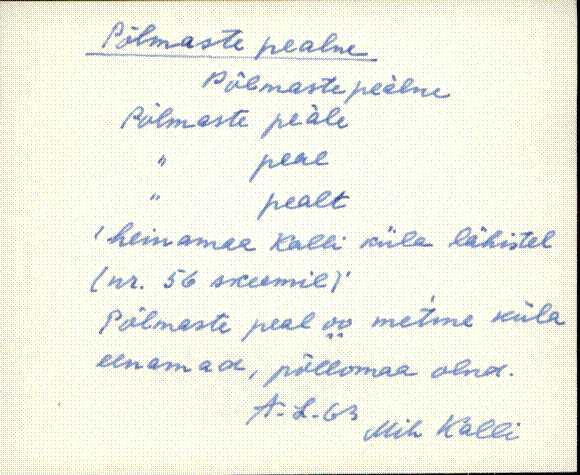 Põlmaste pealne
Põlmaste peàlne
Põlmaste peàle
" peal
" pealt
'heinamaa Kalli küla lähistel
(nr. 56 skeemil)'
Põlmaste peal oo metme küla
einamad, põllomaa olnd.
A-L-63 Mih Kalli